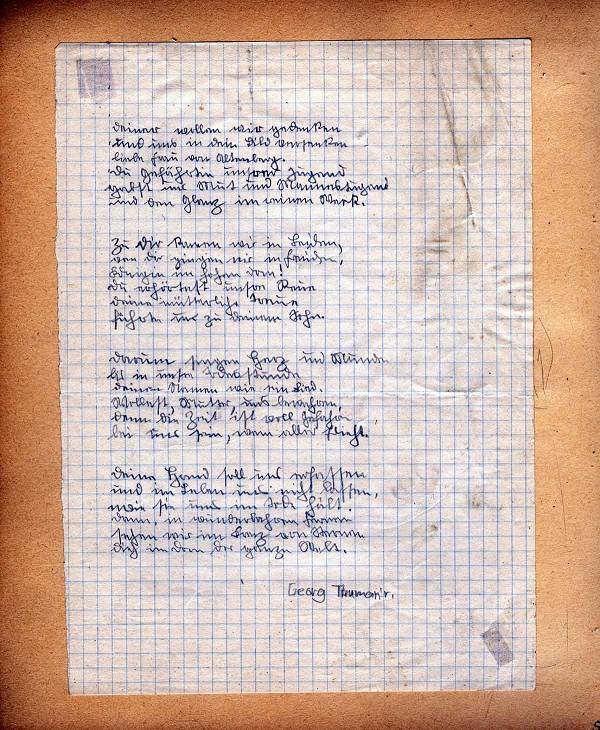 deiner wollen wir gedenken
und uns in dein Bild versenken
liebe Frau von Altenberg.
Du Gefährtin unsrer Jugend
gabst uns Mut und Mannestugend
und den Glanz im reinen Werk.
Zu Dir kamen wir in Leiden,
von dir gingen wir in Freuden,
Königin im hohen Dom!
Du erhörtest unsre Reue
deine mütterliche Treue
führte uns zu deinem Sohn.
Darum singen Herz und Munde
bis in unsre Todesstunde
deinen Namen wie ein Lied.
Wollest, Mutter, uns bewahren,
denn die Zeit ist voll Gefahren
bei uns sein, wenn alles flieht.
Deine Hand soll uns erfassen
und im Leben uns nicht lassen,
wie sie uns im Tode hält.
dann, in wunderbaren Fernen
sehen wir im Kranz von Sternen
dich in dem der ganzen Welt.
Georg